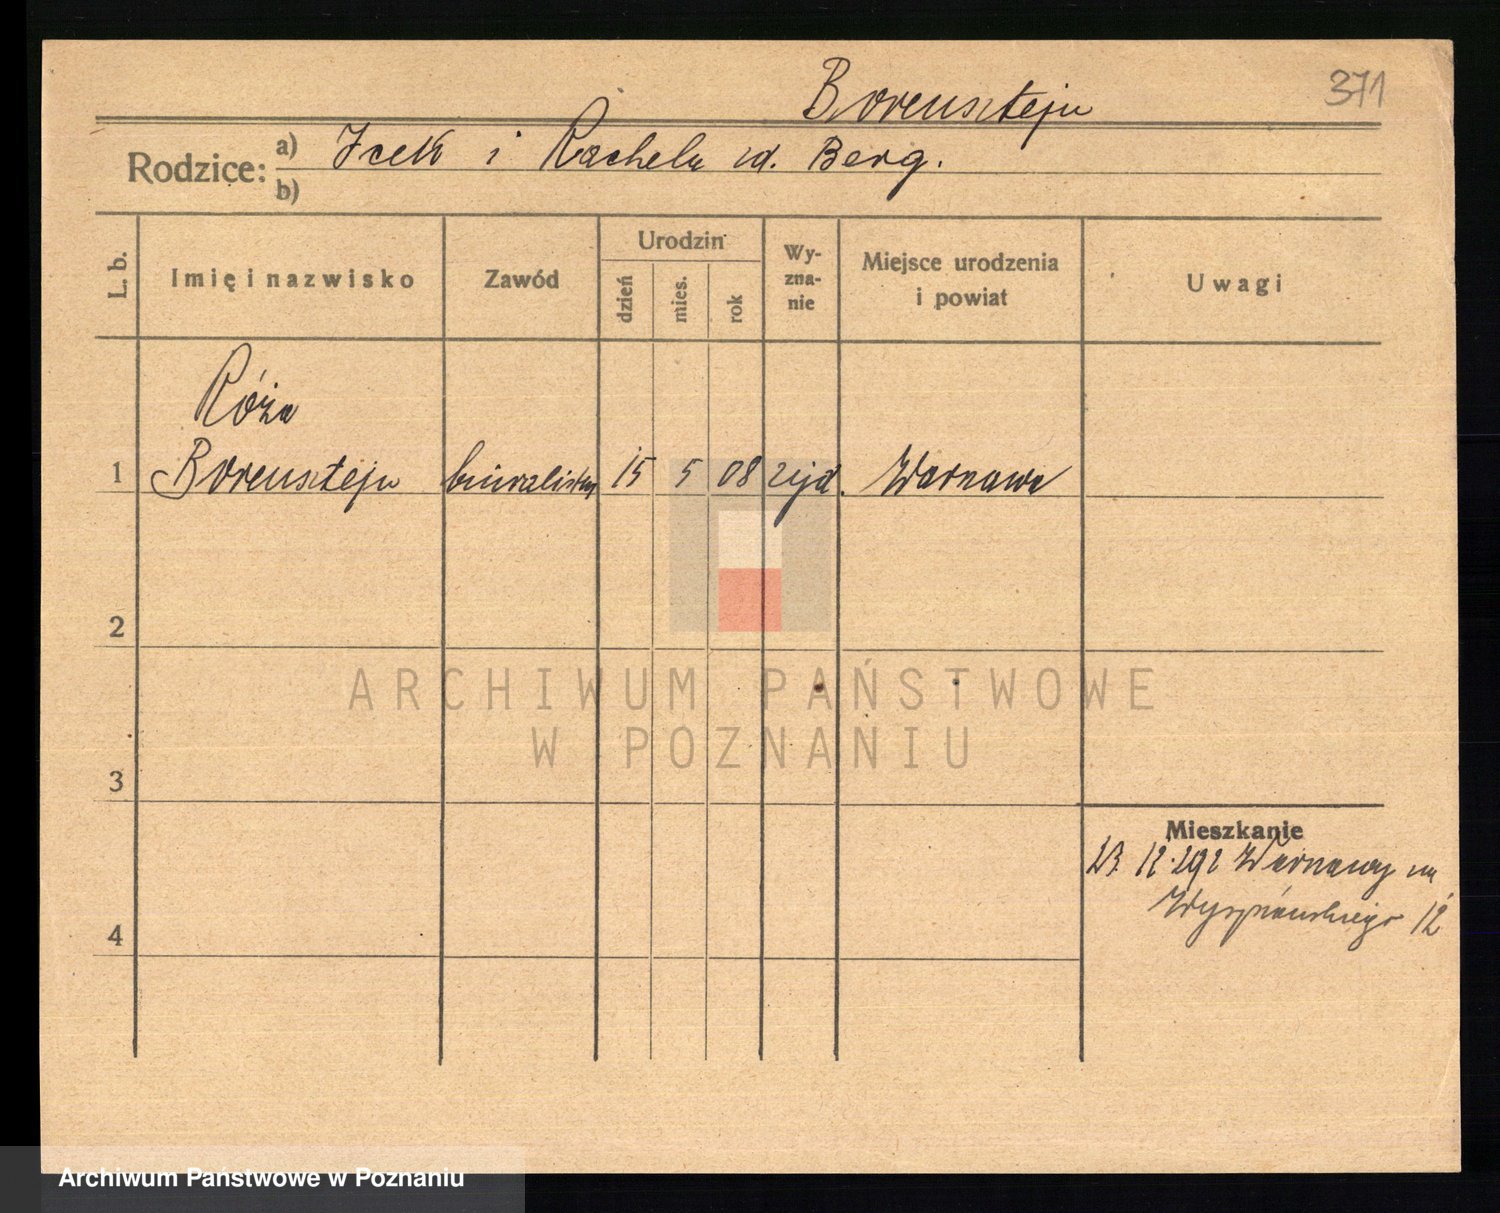 371
Borensztejn
Rodzice: a) Icek i Rachela zd. Berg.
b)
L. b. Imię i nazwisko Zawód Urodzin dzień mies. rok Wyznanie Miejsce urodzenia i powiat Uwagi
Róża
1 Borensztejn biuralistka 15 5 08 żyd. Warszawa
2
3
4
Mieszkanie
23. 12. z Warszawy na
Wyspiańskiego 12
ARCHIWUM PAŃSTWOWE
W POZNANIU
Archiwum Państwowe w Poznaniu